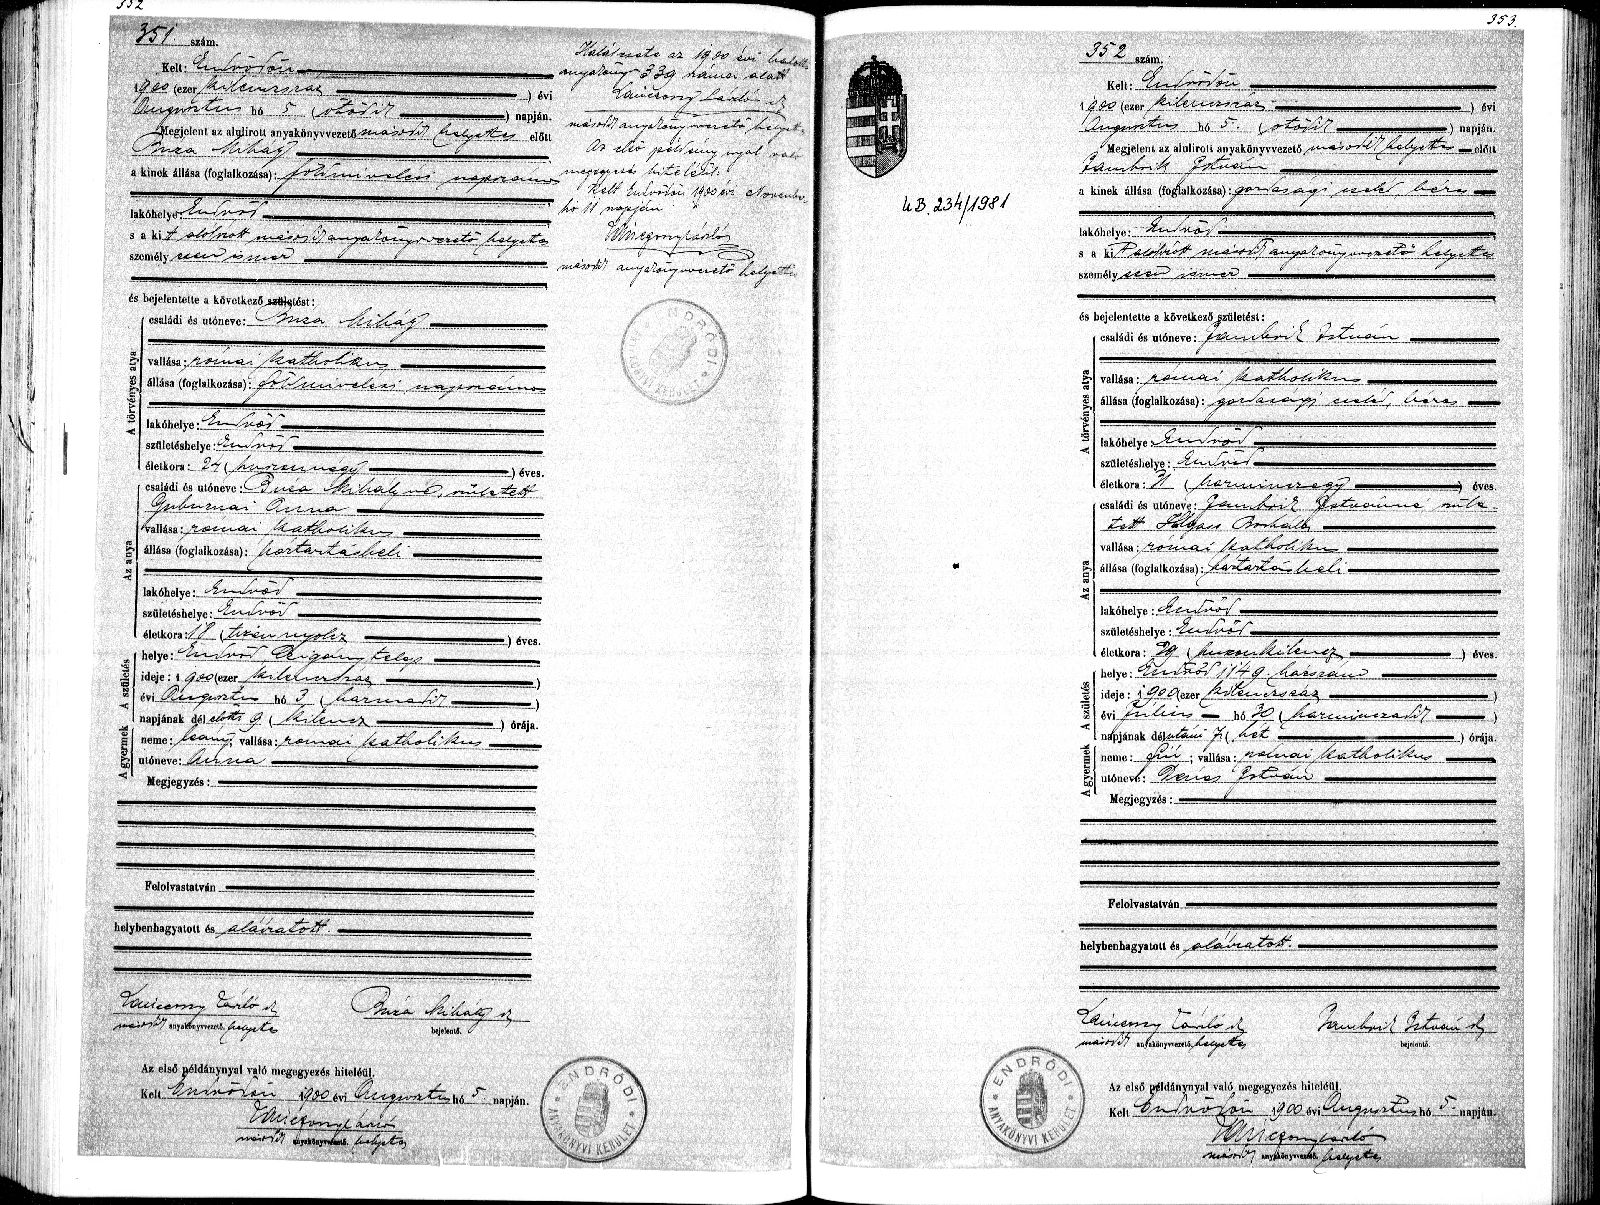 352
351 szám.
Kelt: Endrődön
1900 (ezer kilenczszáz ) évi
Augusztus hó 5 (ötödik ) napján.
Megjelent az alulirott anyakönyvvezető második helyettes előtt
Buza Mihály
a kinek állása (foglalkozása): földmivelesi napszámos
lakóhelye: Endrőd
s a kit alólirott második anyakönyvvezető helyettes
személyesen ismer
és bejelentette a következő születést:
A törvényes atya
családi és utóneve: Buza Mihály
vallása: római katholikus
állása (foglalkozása): földmivelesi napszámos
lakóhelye: Endrőd
születéshelye: Endrőd
életkora: 24 (huszonnégy ) éves.
Az anya
családi és utóneve: Buza Mihályné, született
Anna
vallása: romai katholikus
állása (foglalkozása): háztartásbeli
lakóhelye: Endrőd
születéshelye: Endrőd
életkora: 18 (tizennyolcz ) éves.
A születés
helye: Endrőd Czigány telep
ideje: 1900 (ezer kilenczszáz )
évi Augusztus hó 3 (harmadik )
napjának délelőtti 9 (kilencz ) órája.
A gyermek
neme: leány; vallása: romai katholikus
utóneve: Anna
Megjegyzés:
Felolvastatván
helybenhagyatott és aláiratott.
László sk
második anyakönyvvezető, helyettes
Buza Mihály sk
bejelentő.
Az első példánynyal való megegyezés hiteléül.
Kelt Endrődön 1900 évi Augusztus hó 5 napján.
László
második anyakönyvvezető. helyettes
ENDRŐDI ANYAKÖNYVI KERÜLET
Halálesete az 1900 évi halotti
anyakönyv 339 száma alatt
László sk
második anyakönyvvezető helyettes
Az első példánynyal való
megegyezés hiteléül.
Kelt Endrődön 1900 évi November
hó 11 napján
László
második anyakönyvvezető helyettes
ENDRŐDI ANYAKÖNYVI KERÜLET
353.
UB. 234/1981
352 szám.
Kelt: Endrődön
1900 (ezer kilenczszáz ) évi
Augusztus hó 5. (ötödik ) napján.
Megjelent az alulirott anyakönyvvezető második helyettes előtt
Zambrik István
a kinek állása (foglalkozása): gazdasagi cseléd béres
lakóhelye: Endrőd
s a kit alólirott második anyakönyvvezető helyettes
személyesen ismer
és bejelentette a következő születést:
A törvényes atya
családi és utóneve: Zambrik István
vallása: romai katholikus
állása (foglalkozása): gazdasagi cseléd, béres
lakóhelye: Endrőd
születéshelye: Endrőd
életkora: 31 (harminczegy ) éves.
Az anya
családi és utóneve: Zambrik Istvánné szüle-
tett Borbála
vallása: római katholikus
állása (foglalkozása): háztartásbeli
lakóhelye: Endrőd
születéshelye: Endrőd
életkora: 29 (huszonkilencz ) éves.
A születés
helye: Endrőd 1149 házszám
ideje: 1900 (ezer kilenczszáz )
évi Julius hó 30 (harminczadik )
napjának délutáni 7 (hét ) órája.
A gyermek
neme: fiú; vallása: romai katholikus
utóneve: István
Megjegyzés:
Felolvastatván
helybenhagyatott és aláiratott.
László sk
második anyakönyvvezető, helyettes
Zambrik István sk
bejelentő.
ENDRŐDI ANYAKÖNYVI KERÜLET
Az első példánynyal való megegyezés hiteléül.
Kelt Endrődön 1900 évi Augusztus hó 5. napján.
László
második anyakönyvvezető, helyettes